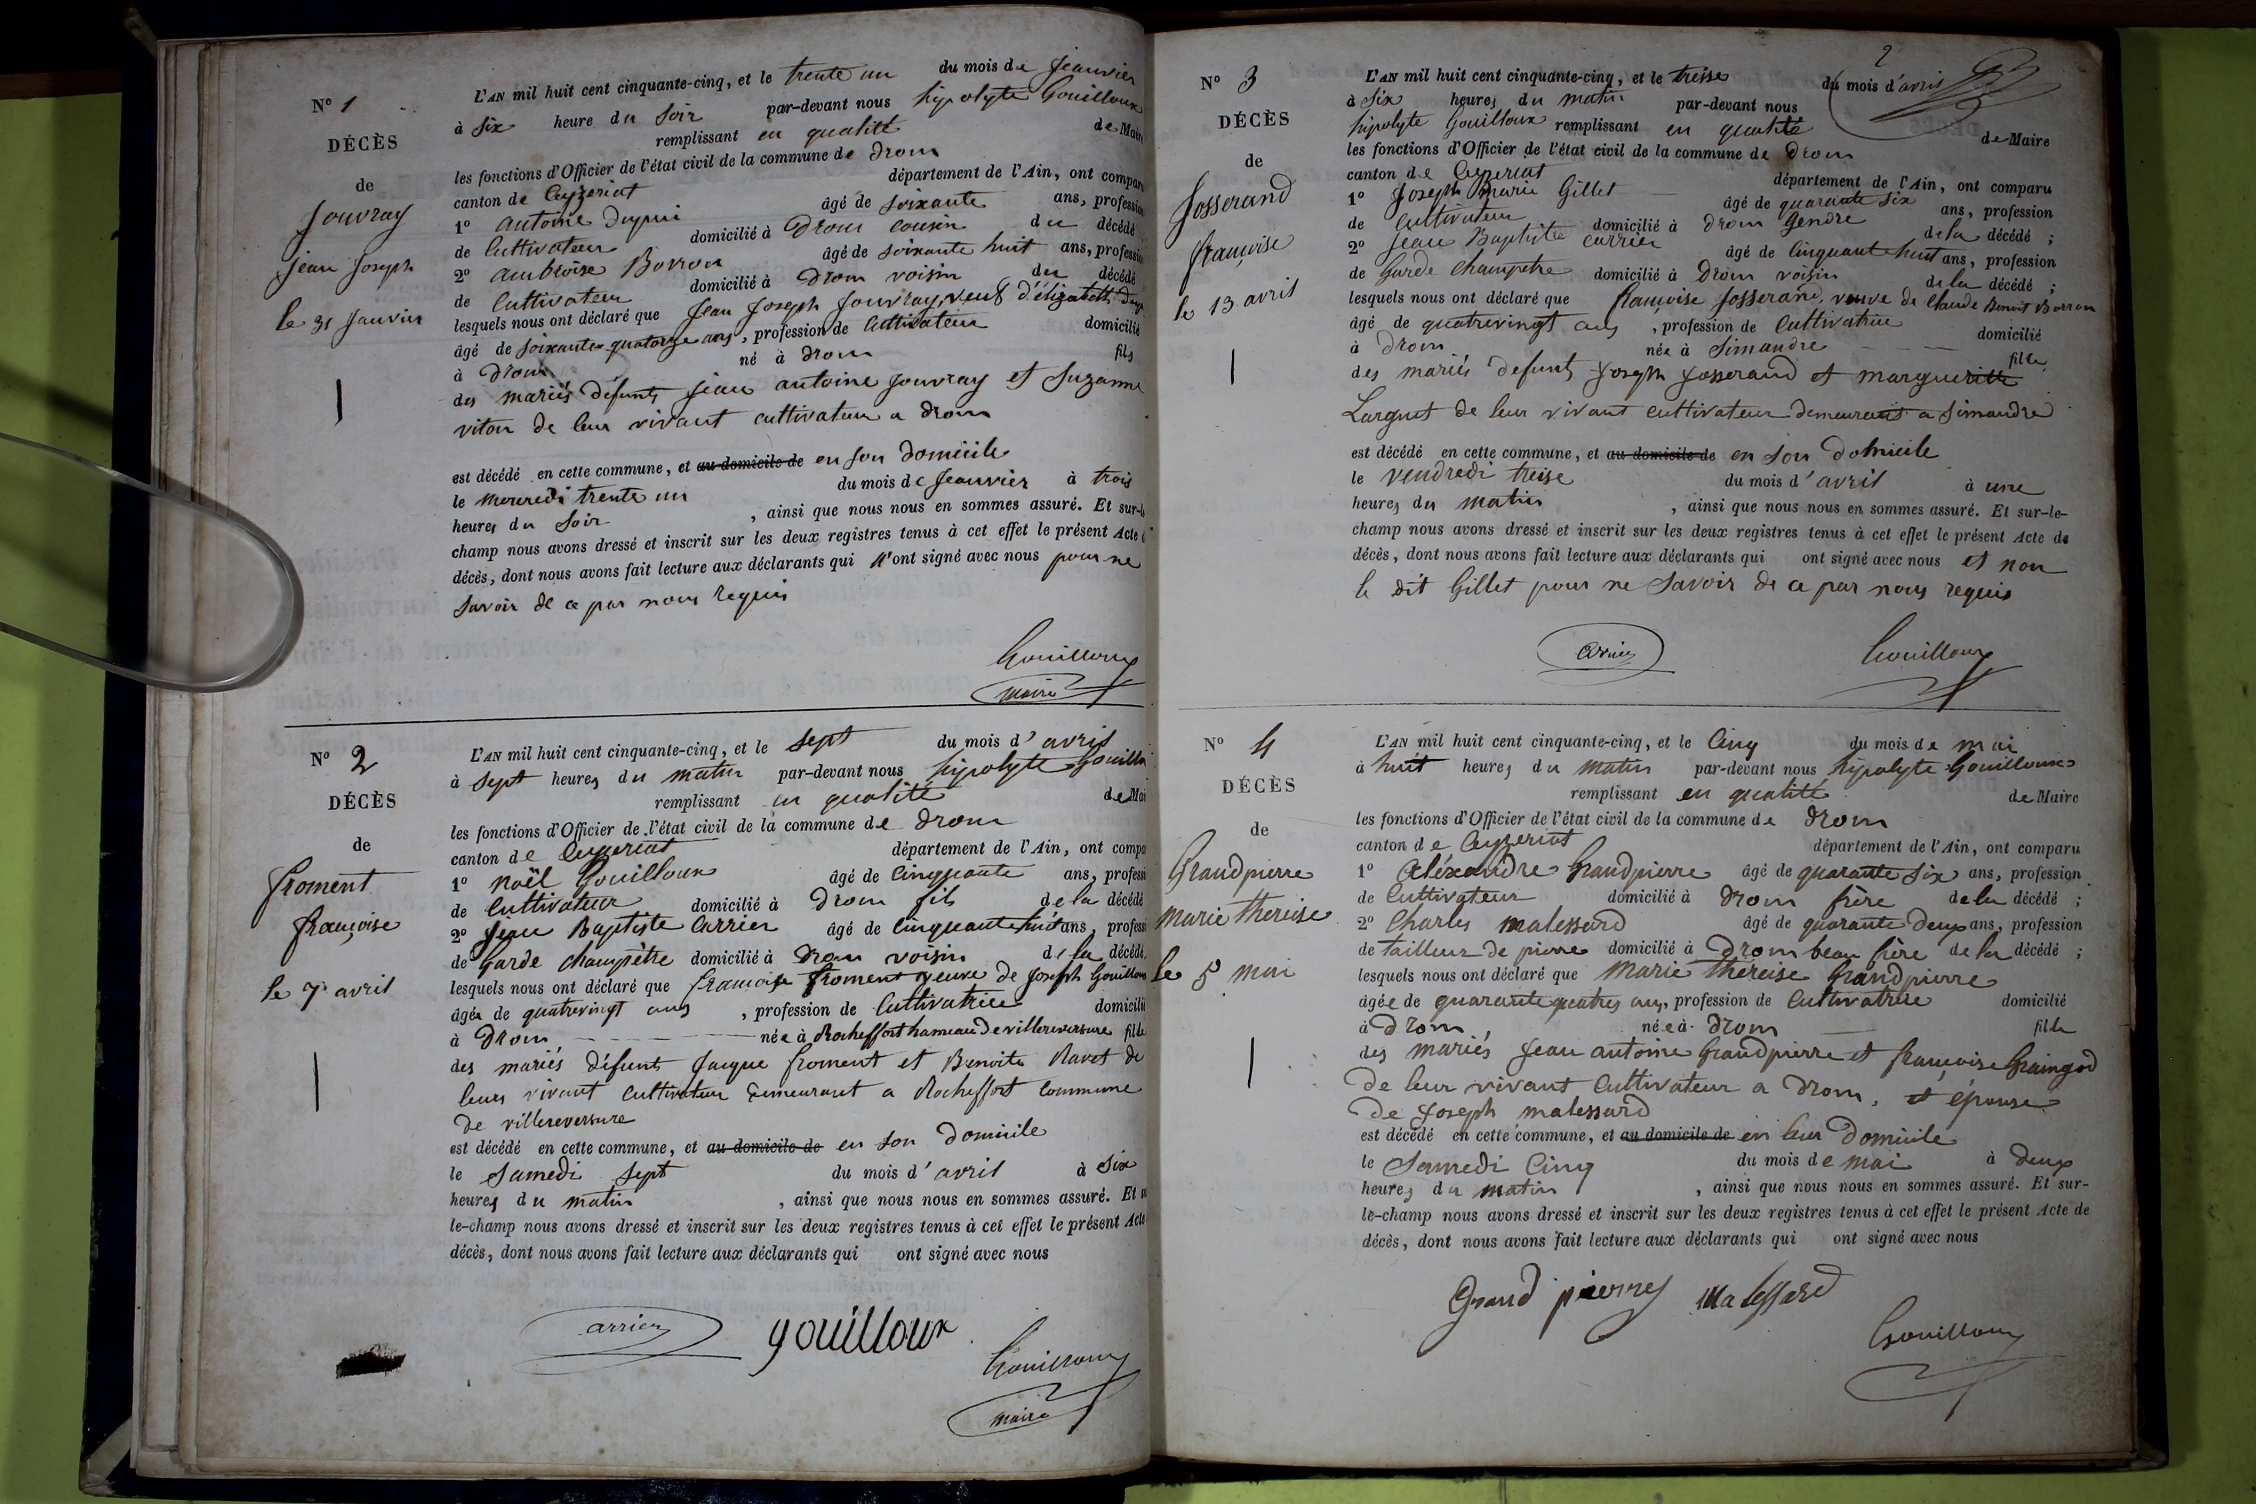 N° 1
DÉCÈS
de
Jouvray
jean Joseph
le 31 Janvier
L'AN mil huit cent cinquante-cinq, et le trente un du mois de Jeanvier
à six heure du soir par-devant nous hypolyte Gouilloux
remplissant en qualité de Maire
les fonctions d'Officier de l'état civil de la commune de Drom
canton de Ceyzeriat département de l'Ain, ont comparu
1° antoine Dupui âgé de soixante ans, profession
de Cultivateur domicilié à Drom cousin du décédé
2° ambroise Borron âgé de soixante huit ans, profession
de Cultivateur domicilié à Drom voisin du décédé
lesquels nous ont déclaré que Jean Joseph Jouvray, veuf d'élizabeth
âgé de soixante quatorze ans, profession de Cultivateur domicilié
à Drom né à Drom fils
des mariés défunts jean antoine Jouvray et Suzanne
viton de leur vivant cultivateur a Drom
est décédé en cette commune, et au domicile de en son Domicile
le mercredi trente un du mois de Jeanvier à trois
heures du Soir , ainsi que nous nous en sommes assuré. Et sur-le
champ nous avons dressé et inscrit sur les deux registres tenus à cet effet le présent Acte
décès, dont nous avons fait lecture aux déclarants qui n'ont signé avec nous pour ne
savoir de ce par nous requis
Gouilloux
maire
N° 2
DÉCÈS
de
froment
françoise
le 7 avril
L'AN mil huit cent cinquante-cinq, et le sept du mois d'avril
à sept heures du matin par-devant nous hipolyte Gouillou
remplissant en qualité de Mai
les fonctions d'Officier de l'état civil de la commune de Drom
canton de Ceyzeriat département de l'Ain, ont compa
1° noël Gouilloux âgé de Cinquante ans, professi
de Cultivateur domicilié à Drom fils de la décédé
2° Jean Baptiste Carrier âgé de Cinquante huit ans, professi
de Garde champêtre domicilié à Drom voisin de la décédé
lesquels nous ont déclaré que françoise froment veuve de Joseph Gouilloux
âgée de quatrevingt ans , profession de Cultivatrice domicilié
à Drom née à Rocheffort hameau de villereversure fille
des mariés défunts Jacque froment et Benoite Ravet de
leurs vivant cultivateur Demeurant a Rocheffort Commune
de villereversure
est décédé en cette commune, et au domicile de en son Domicile
le Samedi sept du mois d'avril à six
heures du matin , ainsi que nous nous en sommes assuré. Et
le-champ nous avons dressé et inscrit sur les deux registres tenus à cet effet le présent Acte
décès, dont nous avons fait lecture aux déclarants qui ont signé avec nous
Carrier gouilloux
Gouilloux
maire
2
N° 3
DÉCÈS
de
Josserand
françoise
le 13 avril
L'AN mil huit cent cinquante-cinq, et le treise du mois d'avril
à six heures du matin par-devant nous
hipolyte Gouilloux remplissant en qualité de Maire
les fonctions d'Officier de l'état civil de la commune de Drom
canton de Ceyzeriat département de l'Ain, ont comparu
1° Joseph marie Gillet âgé de quarante six ans, profession
de Cultivateur domicilié à Drom Gendre de la décédé ;
2° Jean Baptiste carrier âgé de Cinquant huit ans, profession
de Garde Champetre domicilié à Drom voisin de la décédé ;
lesquels nous ont déclaré que françoise Josserand, veuve de Claude Benoit Borron
âgé de quatrevingt ans , profession de Cultivatrice domicilié
à Drom née à Simandre fille
des mariés defunts Joseph Josserand et margueritte
Larguet de leur vivant cultivateur demeurant a Simandre
est décédé en cette commune, et au domicile de en son Domicile
le vendredi treise du mois d'avril à une
heures du matin , ainsi que nous nous en sommes assuré. Et sur-le-
champ nous avons dressé et inscrit sur les deux registres tenus à cet effet le présent Acte de
décès, dont nous avons fait lecture aux déclarants qui ont signé avec nous et non
le dit Gillet pour ne savoir de ce par nous requis
Carrier Gouilloux
N° 4
DÉCÈS
de
Grandpierre
marie thereise
le 5 mai
L'AN mil huit cent cinquante-cinq, et le Cinq du mois de mai
à huit heures du matin par-devant nous hipolyte Gouilloux
remplissant en qualité de Maire
les fonctions d'Officier de l'état civil de la commune de Drom
canton de Ceyzeriat département de l'Ain, ont comparu
1° Aléxandre Grandpierre âgé de quarante six ans, profession
de Cultivateur domicilié à Drom frère de la décédé ;
2° Charles malessard âgé de quarante deux ans, profession
de tailleur de pierre domicilié à Drom beau frère de la décédé ;
lesquels nous ont déclaré que marie théreise Grandpierre
âgée de quarante quatres ans, profession de Cultivatrice domicilié
à Drom, née à Drom fille
des mariés Jean antoine Grandpierre et françoise Graingod
de leur vivant Cultivateur a Drom, et épouse
de Joseph malessard
est décédé en cette commune, et au domicile de en leur Domicile
le Samedi Cinq du mois de mai à deux
heures du matin , ainsi que nous nous en sommes assuré. Et sur-
le-champ nous avons dressé et inscrit sur les deux registres tenus à cet effet le présent Acte de
décès, dont nous avons fait lecture aux déclarants qui ont signé avec nous
Grand pierre malessard
Gouilloux